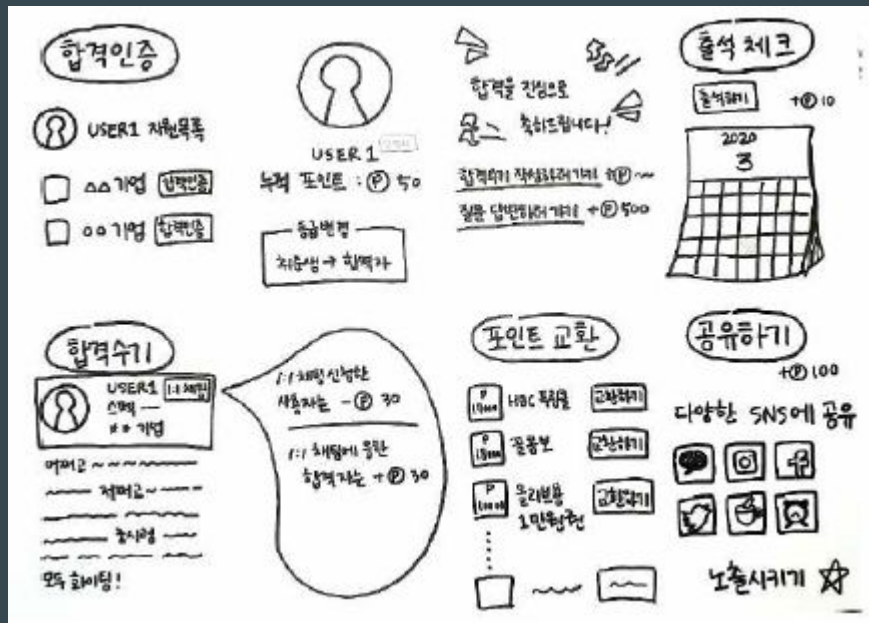 합격인증
USER1 지원목록
△△기업 합격인증
○○기업 합격인증
USER1
누적 포인트 : Ⓟ 50
등급변경
취준생 → 합격자
합격을 진심으로
축하드립니다!
합격수기 작성하러가기 +Ⓟ
질문 답변하러가기 +Ⓟ500
출석체크
출석하기 +Ⓟ10
2020
3
합격수기
USER1 1:1 채팅
스펙
** 기업
어쩌고
저쩌고
모두 화이팅!
1:1 채팅 신청한
사용자는 -Ⓟ 30
1:1 채팅에 응한
합격자는 +Ⓟ 30
포인트 교환
P 교환하기
P 교환하기
P 올리브영 교환하기
1만원권
공유하기
+Ⓟ100
다양한 SNS에 공유
노출시키기